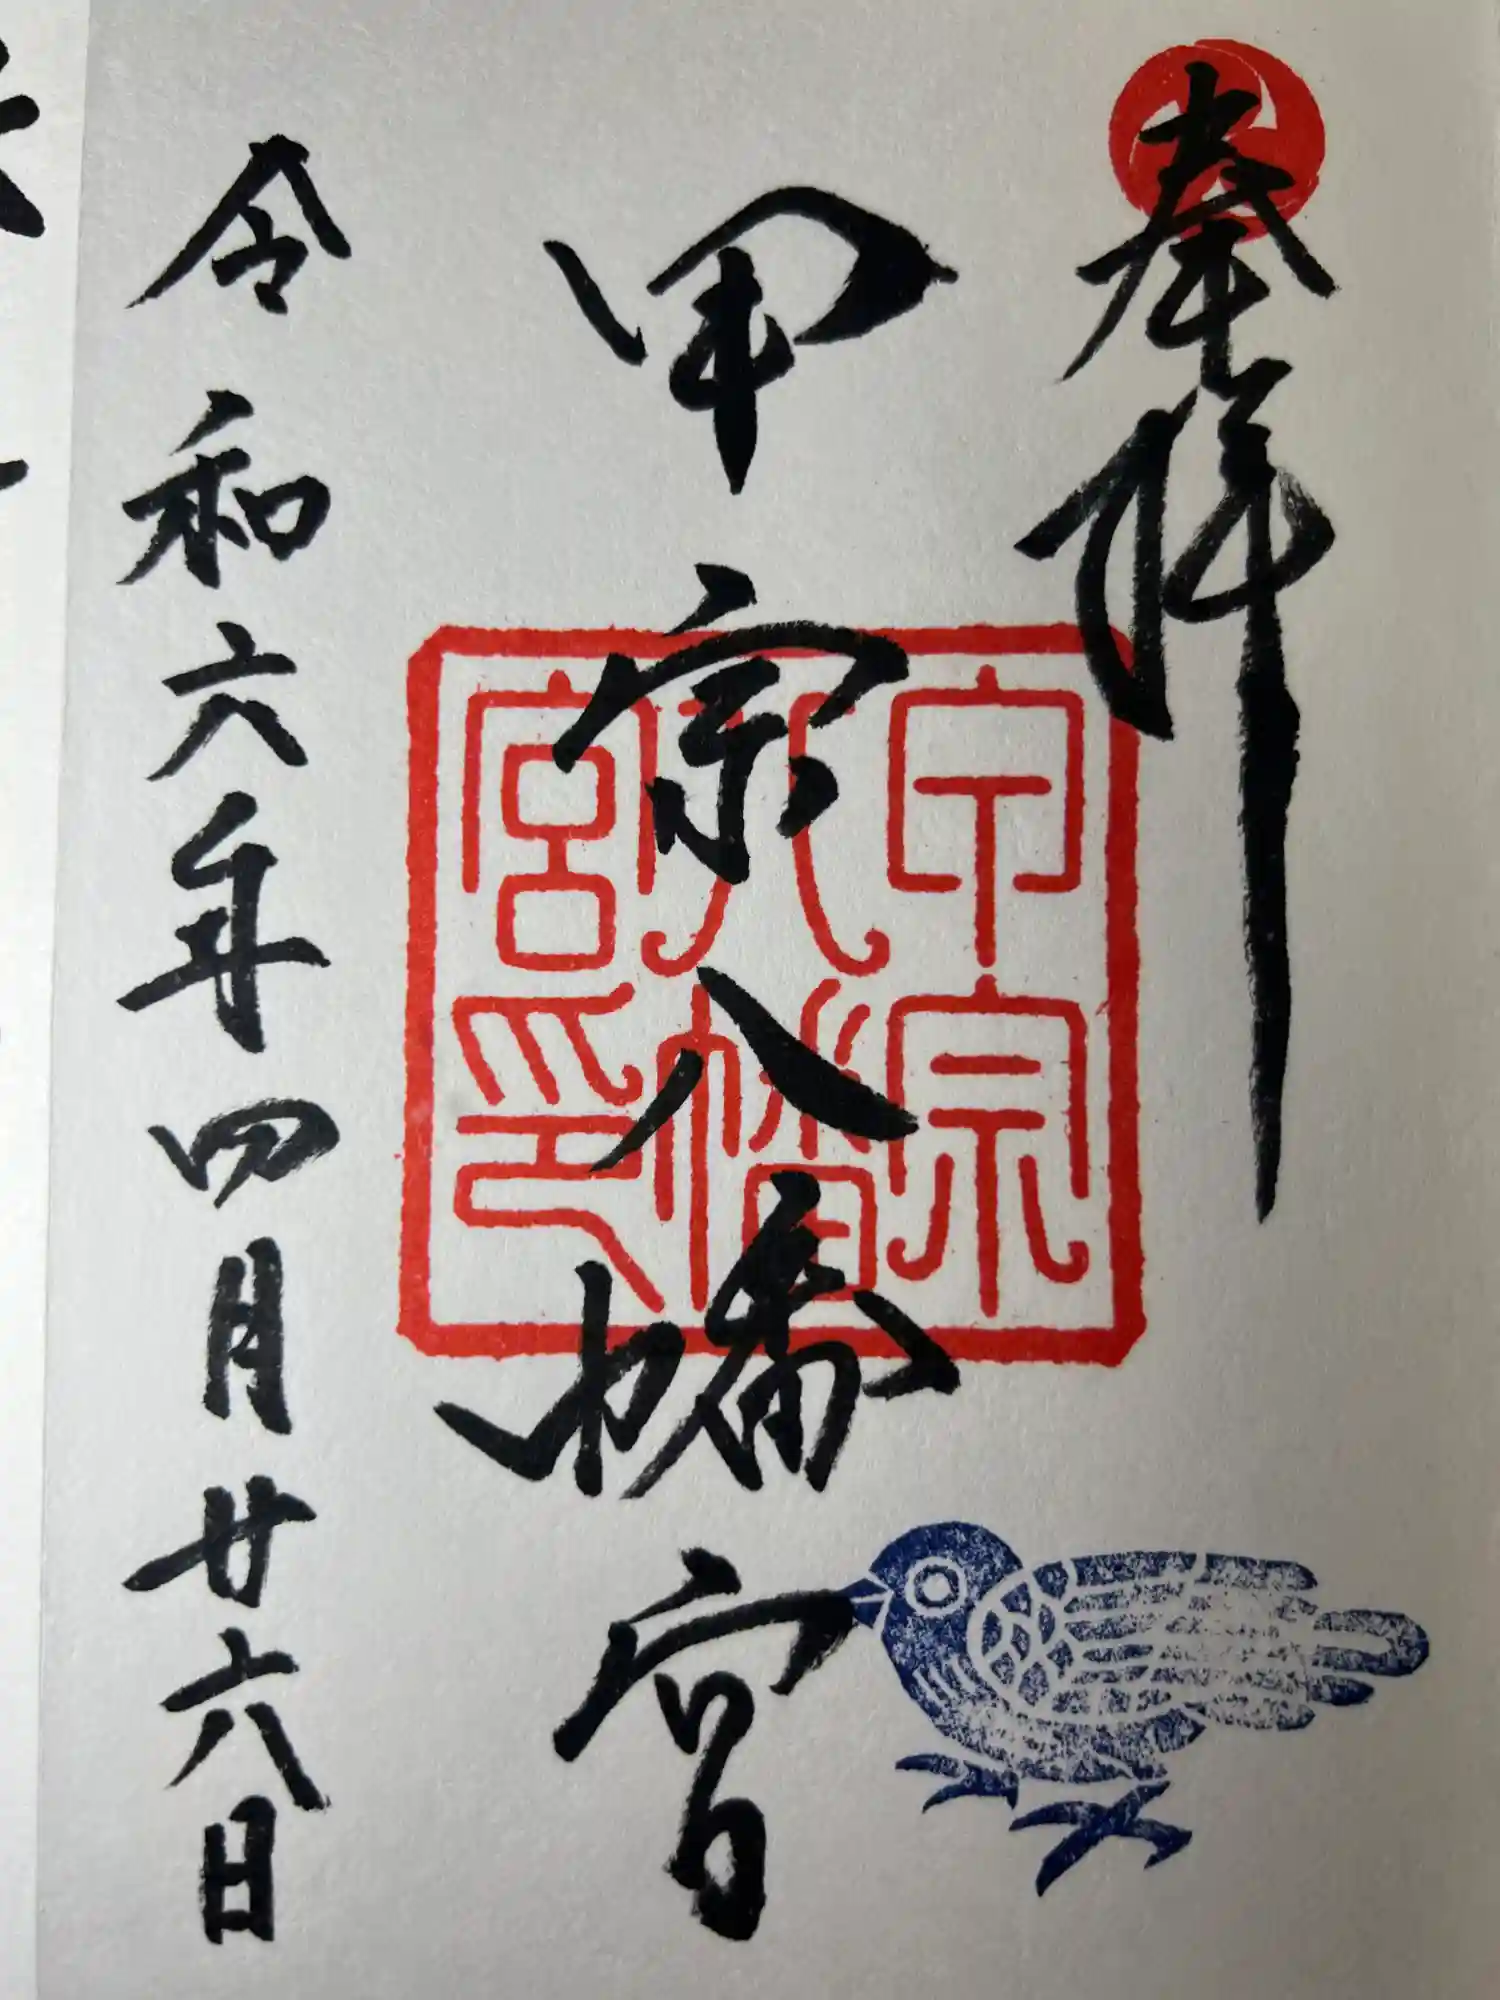 奉拝
甲宗八幡宮
甲宗
八幡
宮印
令和六年四月廿六日